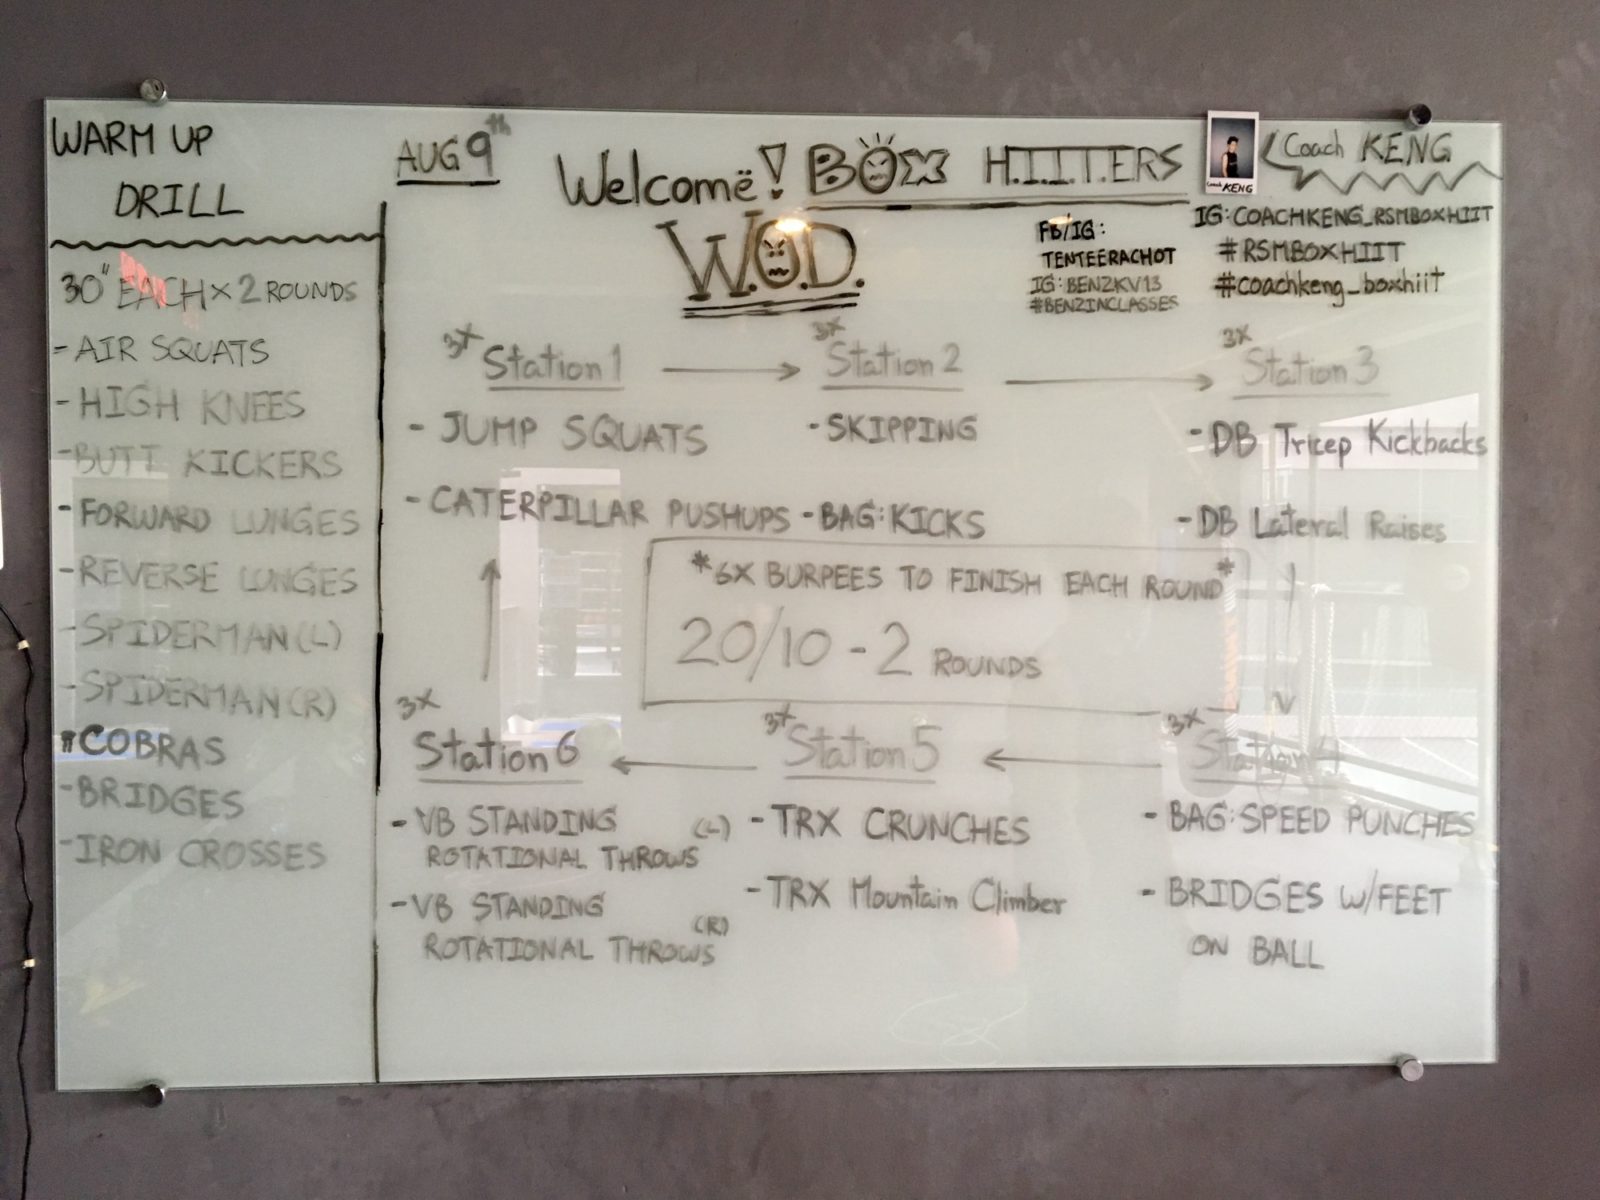 WARM UP
DRILL
30" EACH x 2 ROUNDS
- AIR SQUATS
- HIGH KNEES
- BUTT KICKERS
- FORWARD LUNGES
- REVERSE LUNGES
- SPIDERMAN (L)
- SPIDERMAN (R)
COBRAS
- BRIDGES
- IRON CROSSES
AUG 9th
Welcomë! BOX H.I.I.T.ERS
W.O.D.
Coach KENG
Coach KENG
FB/IG:
TENTEERACHOT
IG: BENZKV13
#BENZINCLASSES
IG: COACHKENG_RSMBOXHIIT
#RSMBOXHIIT
#coachkeng_boxhiit
3x Station 1
- JUMP SQUATS
- CATERPILLAR PUSHUPS
3x Station 2
- SKIPPING
- BAG: KICKS
3x Station 3
- DB Tricep Kickbacks
- DB Lateral Raises
*6X BURPEES TO FINISH EACH ROUND*
20/10 - 2 ROUNDS
3x Station 4
- BAG: SPEED PUNCHES
- BRIDGES W/FEET
ON BALL
3x Station 5
- TRX CRUNCHES
- TRX Mountain Climber
3x Station 6
- VB STANDING (L)
ROTATIONAL THROWS
- VB STANDING (R)
ROTATIONAL THROWS